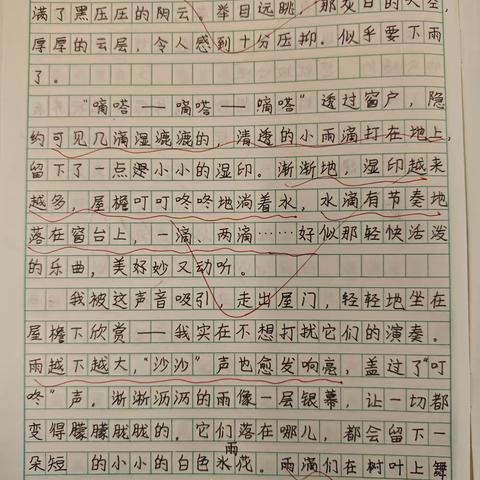 满了黑压压的阴云，举目远眺，那灰白的天空，
厚厚的云层，令人感到十分压抑。似乎要下雨
了。
“嘀嗒——嘀嗒——嘀嗒”透过窗户，隐
约可见几滴湿漉漉的，清透的小雨滴打在地上，
留下了一点小小的湿印。渐渐地，湿印越来
越多，屋檐叮叮咚咚地淌着水，水滴有节奏地
落在窗台上，一滴、两滴……好似那轻快活泼
的乐曲，美好妙又动听。
我被这声音吸引，走出屋门，轻轻地坐在
屋檐下欣赏——我实在不想打扰它们的演奏。
雨越下越大，“沙沙”声也愈发响亮，盖过了“叮
咚”声。渐渐沥沥的雨像一层银幕，让一切都
变得朦朦胧胧的。它们落在哪儿，都会留下一
朵短 的小小的白色水花。雨滴们在树叶上舞
雨